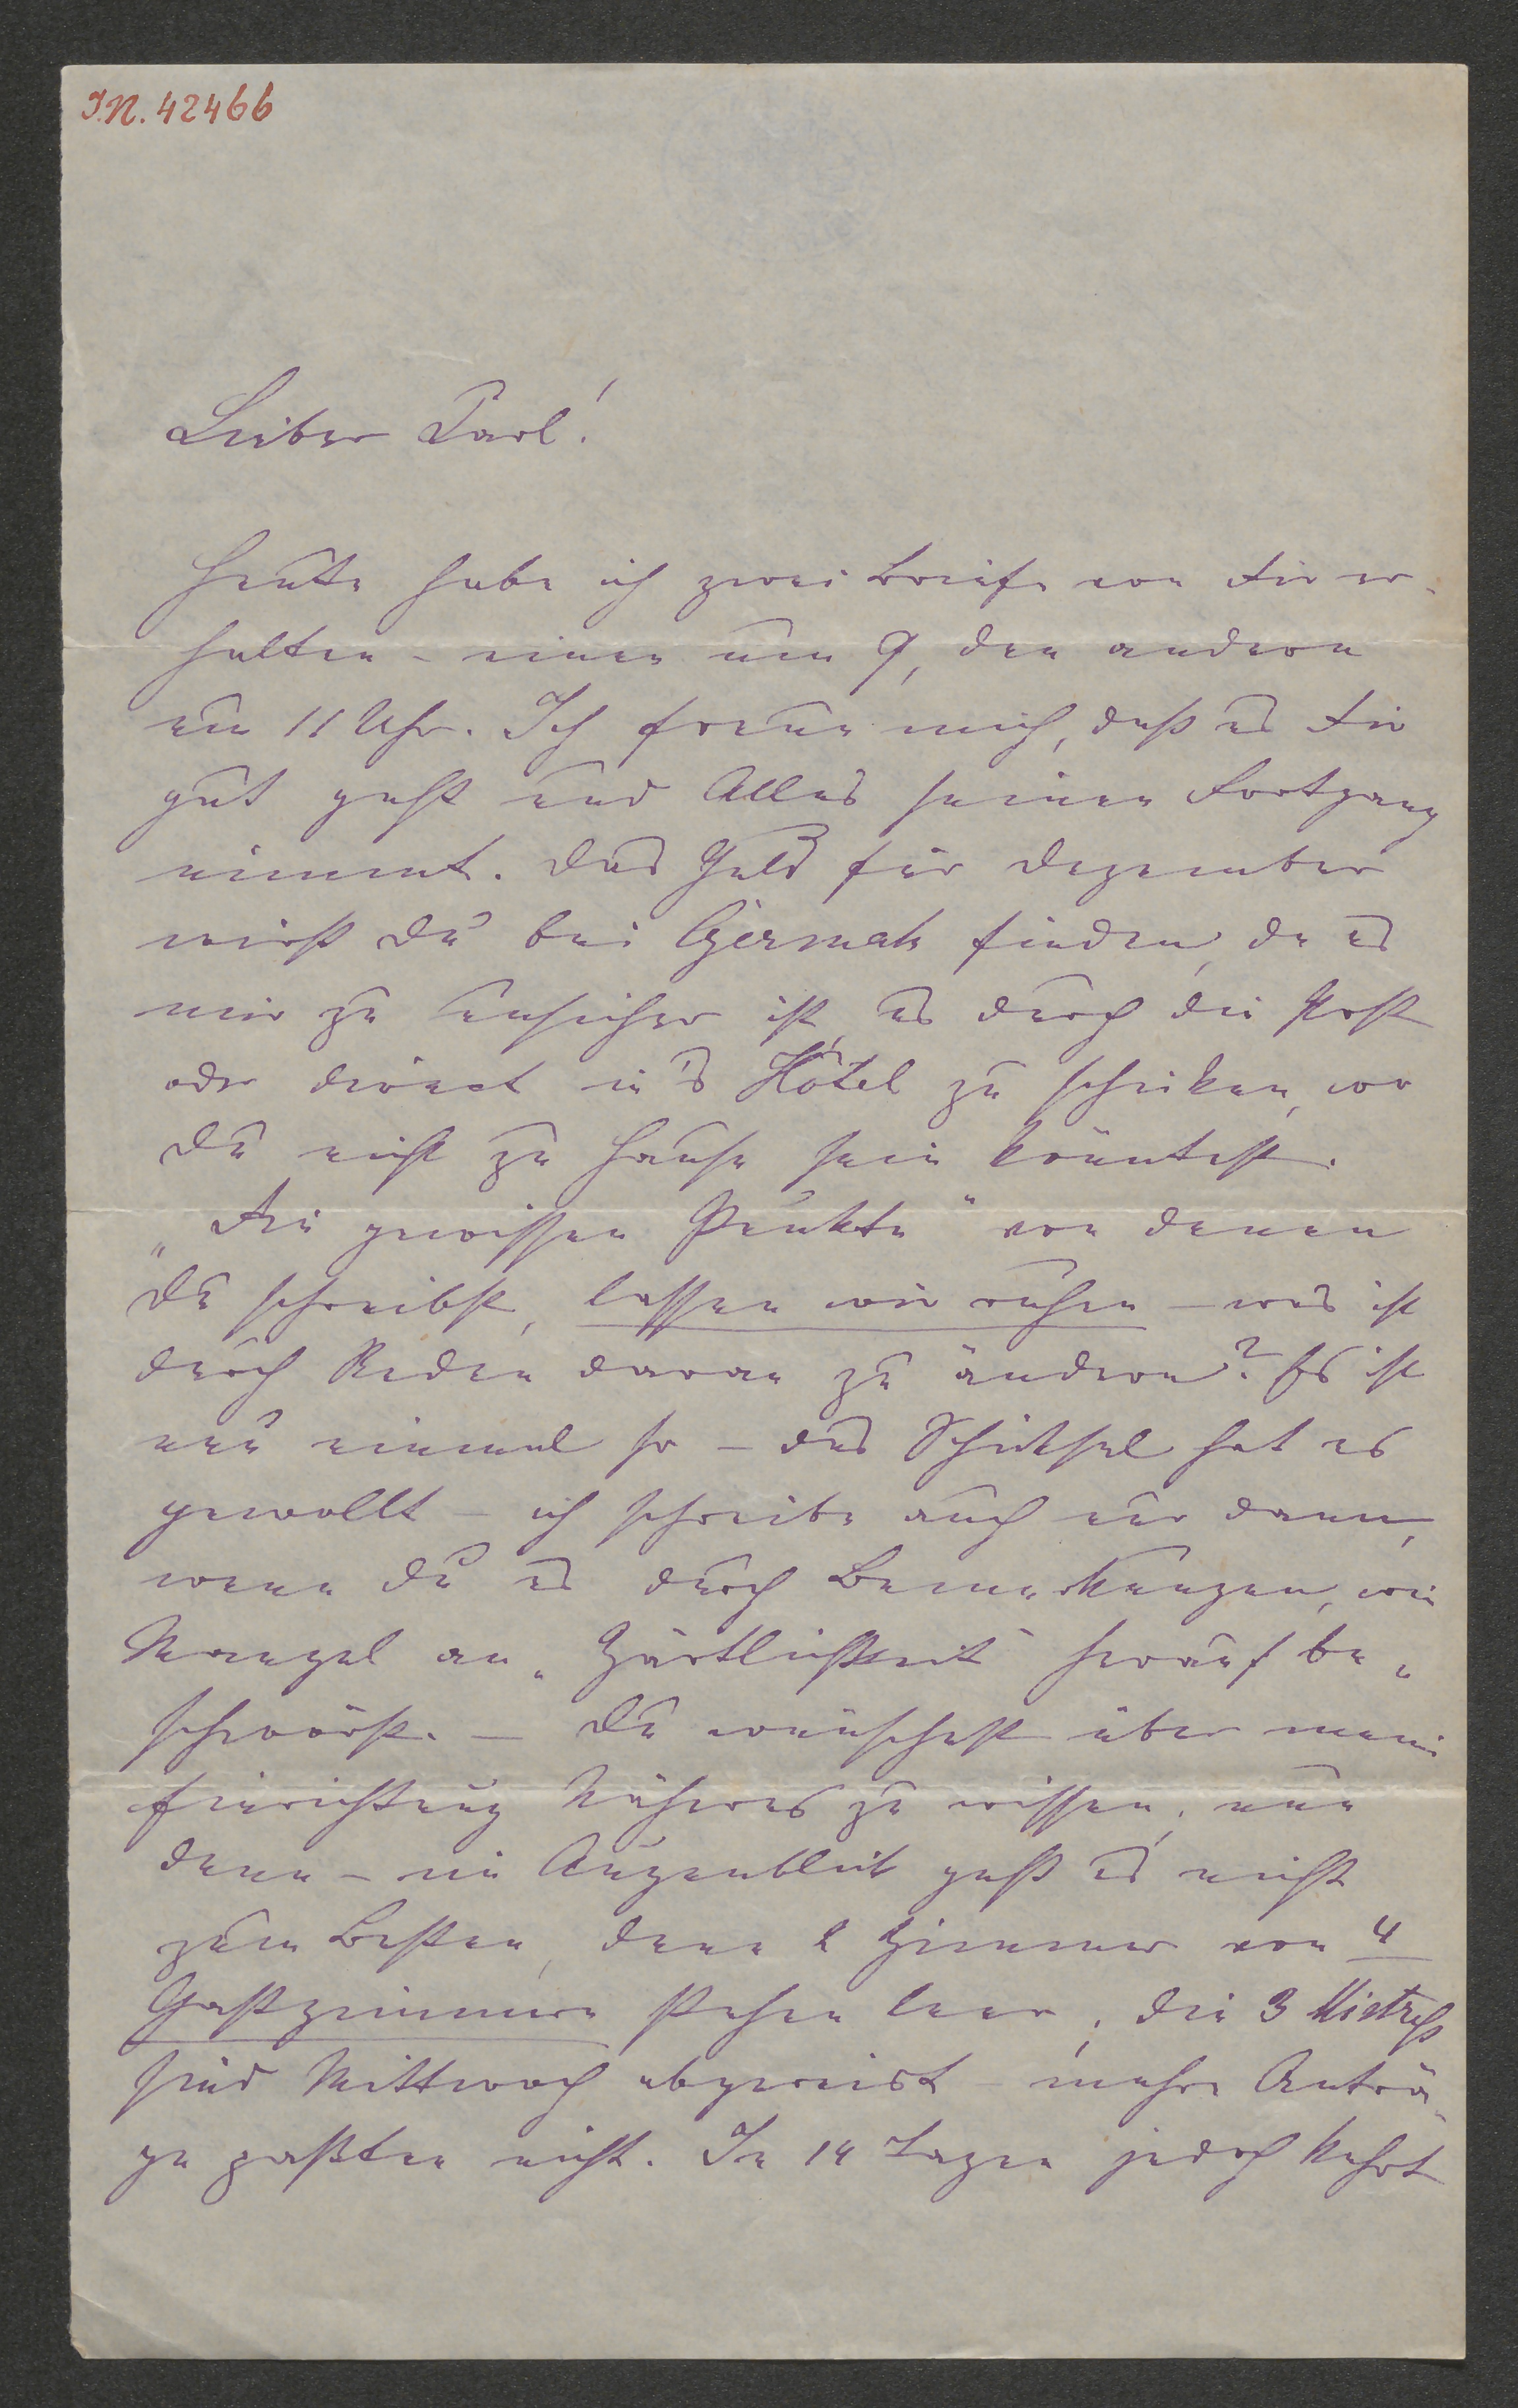 I.N. 42466
Lieber Carl!
Heute habe ich zwei Briefe von Dir er-
halten – einen um 9, den andern
um 11 Uhr. Ich freue mich, daß es Dir
gut geht und Alles seinen Fortgang
nimmt. Das Geld für Dezember
wirst Du bei Czermak finden, da es
mir zu unsicher ist, es durch die Post
oder direct in's Hôtel zu schicken, wo
Du nicht zu Hause sein könntest.
„Die gewissen Punkte" von denen
Du schreibst, lassen wir ruhen – was ist
durch Reden daran zu ändern? Es ist
nun einmal so – das Schicksal hat es
gewollt – ich schreibe auch nur dann,
wenn Du es durch Bemerkungen, wie
Mangel an „Zärtlichkeit" herauf be-
schwörst. – Du wünschest über meine
Einrichtung Näheres zu wissen, nun
denn – im Augenblick geht es nicht
zum Besten, denn 2 Zimmer von 4
Gastzimmern stehen leer, die 3 Mistreß
sind Mittwoch abgereist – mehre Anträ-
ge paßten nicht. In 14 Tagen jedoch kehrt